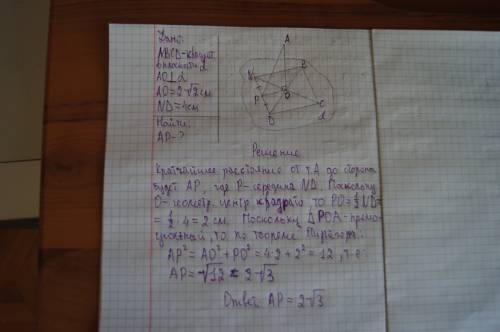 Дано:
ABCD-квадрат
в плоскости α
AO⊥α
AO=2√2 см
ND=4см
Найти:
AP-?
A
B
N
P
O
C
D
α
Решение
Кратчайшее расстояние от т.A до стороны
будет AP, где P-середина ND. Поскольку
O-геометр. центр квадрата, то PO=½ND=
=½·4=2 см. Поскольку △POA-прямо-
угольный, то по теореме Пифагора:
AP²=AO²+PO²=4·2+2²=12, т.е.
AP=√12=2√3
Ответ AP=2√3